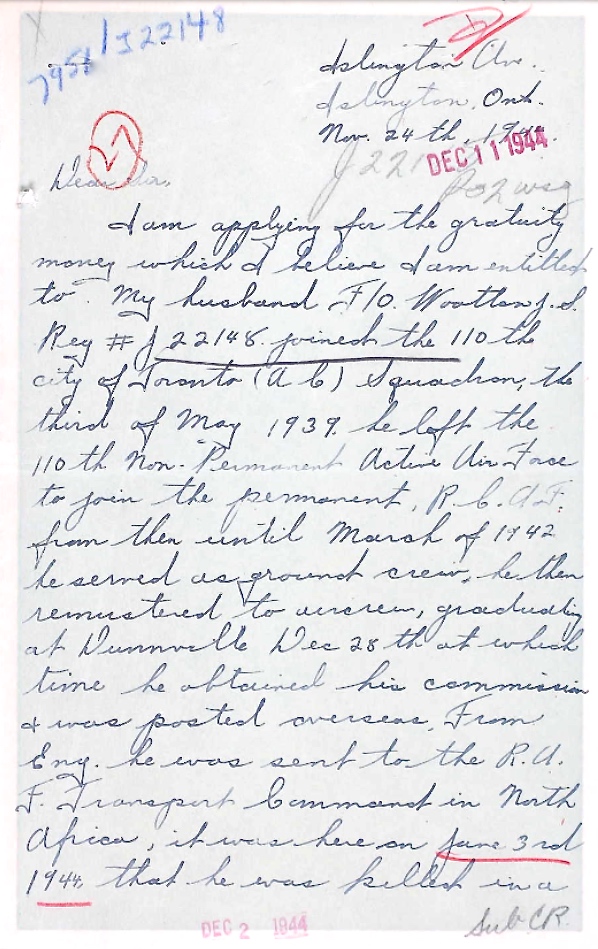 7951/J22148
Islington Ave.
Islington, Ont.
Nov. 24th, 1944.
DEC 11 1944
J221
Dear Sir,
I am applying for the gratuity
money which I believe I am entitled
to. My husband F/O. Wootton J. S.
Reg # J 22148. joined the 110 th
city of Toronto (A C) Squadron, the
third of May 1939. he left the
110 th Non-Permanent Active Air Force
to join the permanent, R. C. A. F.
from then until March of 1942
he served as ground crew, he then
remustered to aircrew, graduating
at Dunnville Dec 28 th at which
time he obtained his commission
& was posted overseas. From
Eng. he was sent to the R. A.
F. Transport Command in North
Africa, it was here on June 3rd
1944, that he was killed in a
DEC 2 1944
Sub CR.